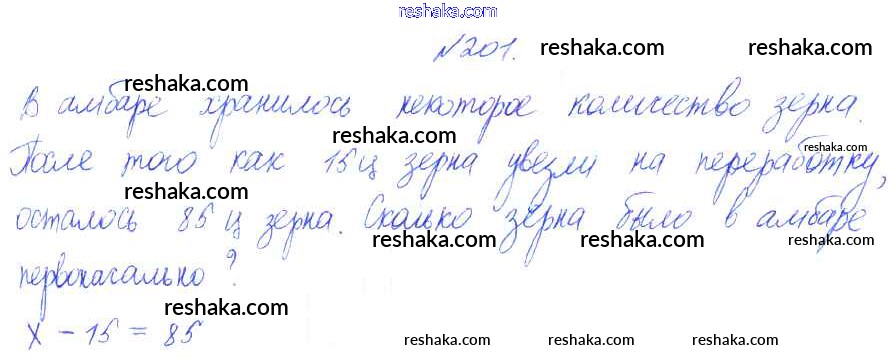 reshaka.com
№201. reshaka.com
reshaka.com
В амбаре хранилось некоторое количество зерна.
reshaka.com reshaka.com
После того как 15 ц зерна увезли на переработку,
reshaka.com reshaka.com
осталось 85 ц зерна. Сколько зерна было в амбаре
reshaka.com reshaka.com reshaka.com
первоначально?
reshaka.com
х - 15 = 85
reshaka.com reshaka.com reshaka.com